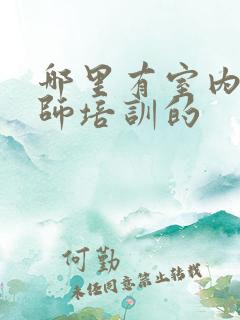 哪里有室内
师培訓的
何勤
未经同意禁止转载